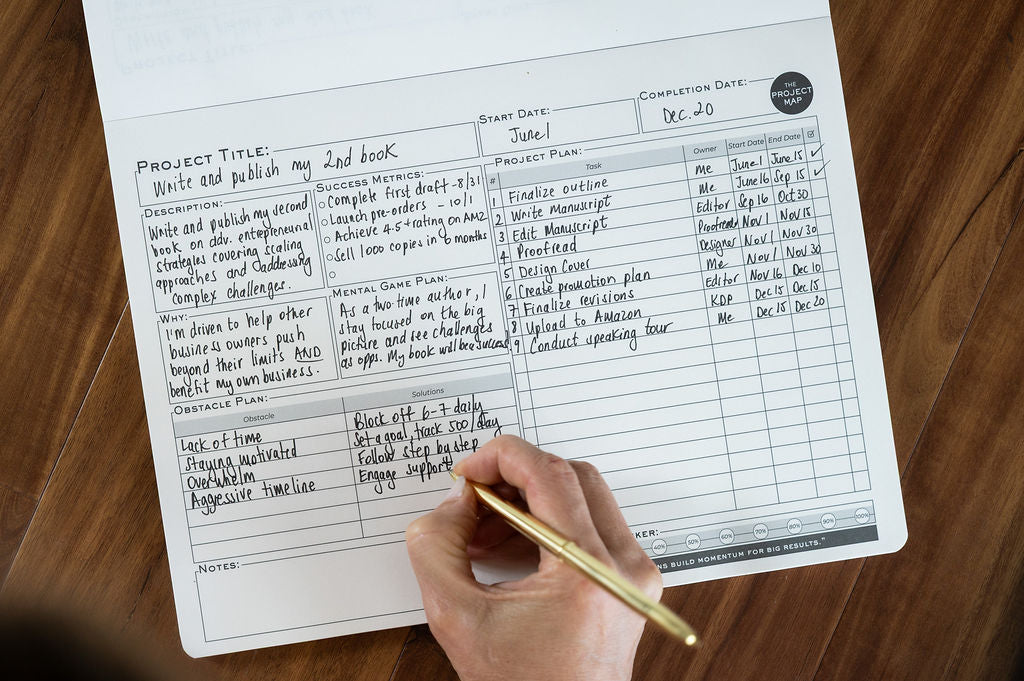 THE
PROJECT
MAP
PROJECT TITLE:
Write and publish my 2nd book
START DATE:
June 1
COMPLETION DATE:
Dec. 20
DESCRIPTION:
Write and publish my second
book on adv. entrepreneurial
strategies covering scaling
approaches and addressing
complex challenges.
SUCCESS METRICS:
Complete first draft - 8/31
Launch pre-orders - 10/1
Achieve 4.5+ rating on AMZ
Sell 1000 copies in 6 months
WHY:
I'm driven to help other
business owners push
beyond their limits AND
benefit my own business.
MENTAL GAME PLAN:
As a two-time author, I
stay focused on the big
picture and see challenges
as opps. My book will be a success!
OBSTACLE PLAN:
Obstacle Solutions
Lack of time Block off 6-7 daily
Staying motivated Set a goal, track 500/day
Overwhelm Follow step by step
Aggressive timeline Engage support
NOTES:
PROJECT PLAN:
# Task Owner Start Date End Date
1 Finalize outline Me June 1 June 15 ✓
2 Write Manuscript Me June 16 Sep 15 ✓
3 Edit Manuscript Editor Sep 16 Oct 30
4 Proofread Nov 1 Nov 15
5 Design Cover Designer Nov 1 Nov 30
6 Create promotion plan Me Nov 1 Nov 30
7 Finalize revisions Editor Nov 16 Dec 10
8 Upload to Amazon KDP Dec 15 Dec 15
9 Conduct speaking tour Me Dec 15 Dec 20
KER:
40% 50% 60% 70% 80% 90% 100%
NS BUILD MOMENTUM FOR BIG RESULTS."